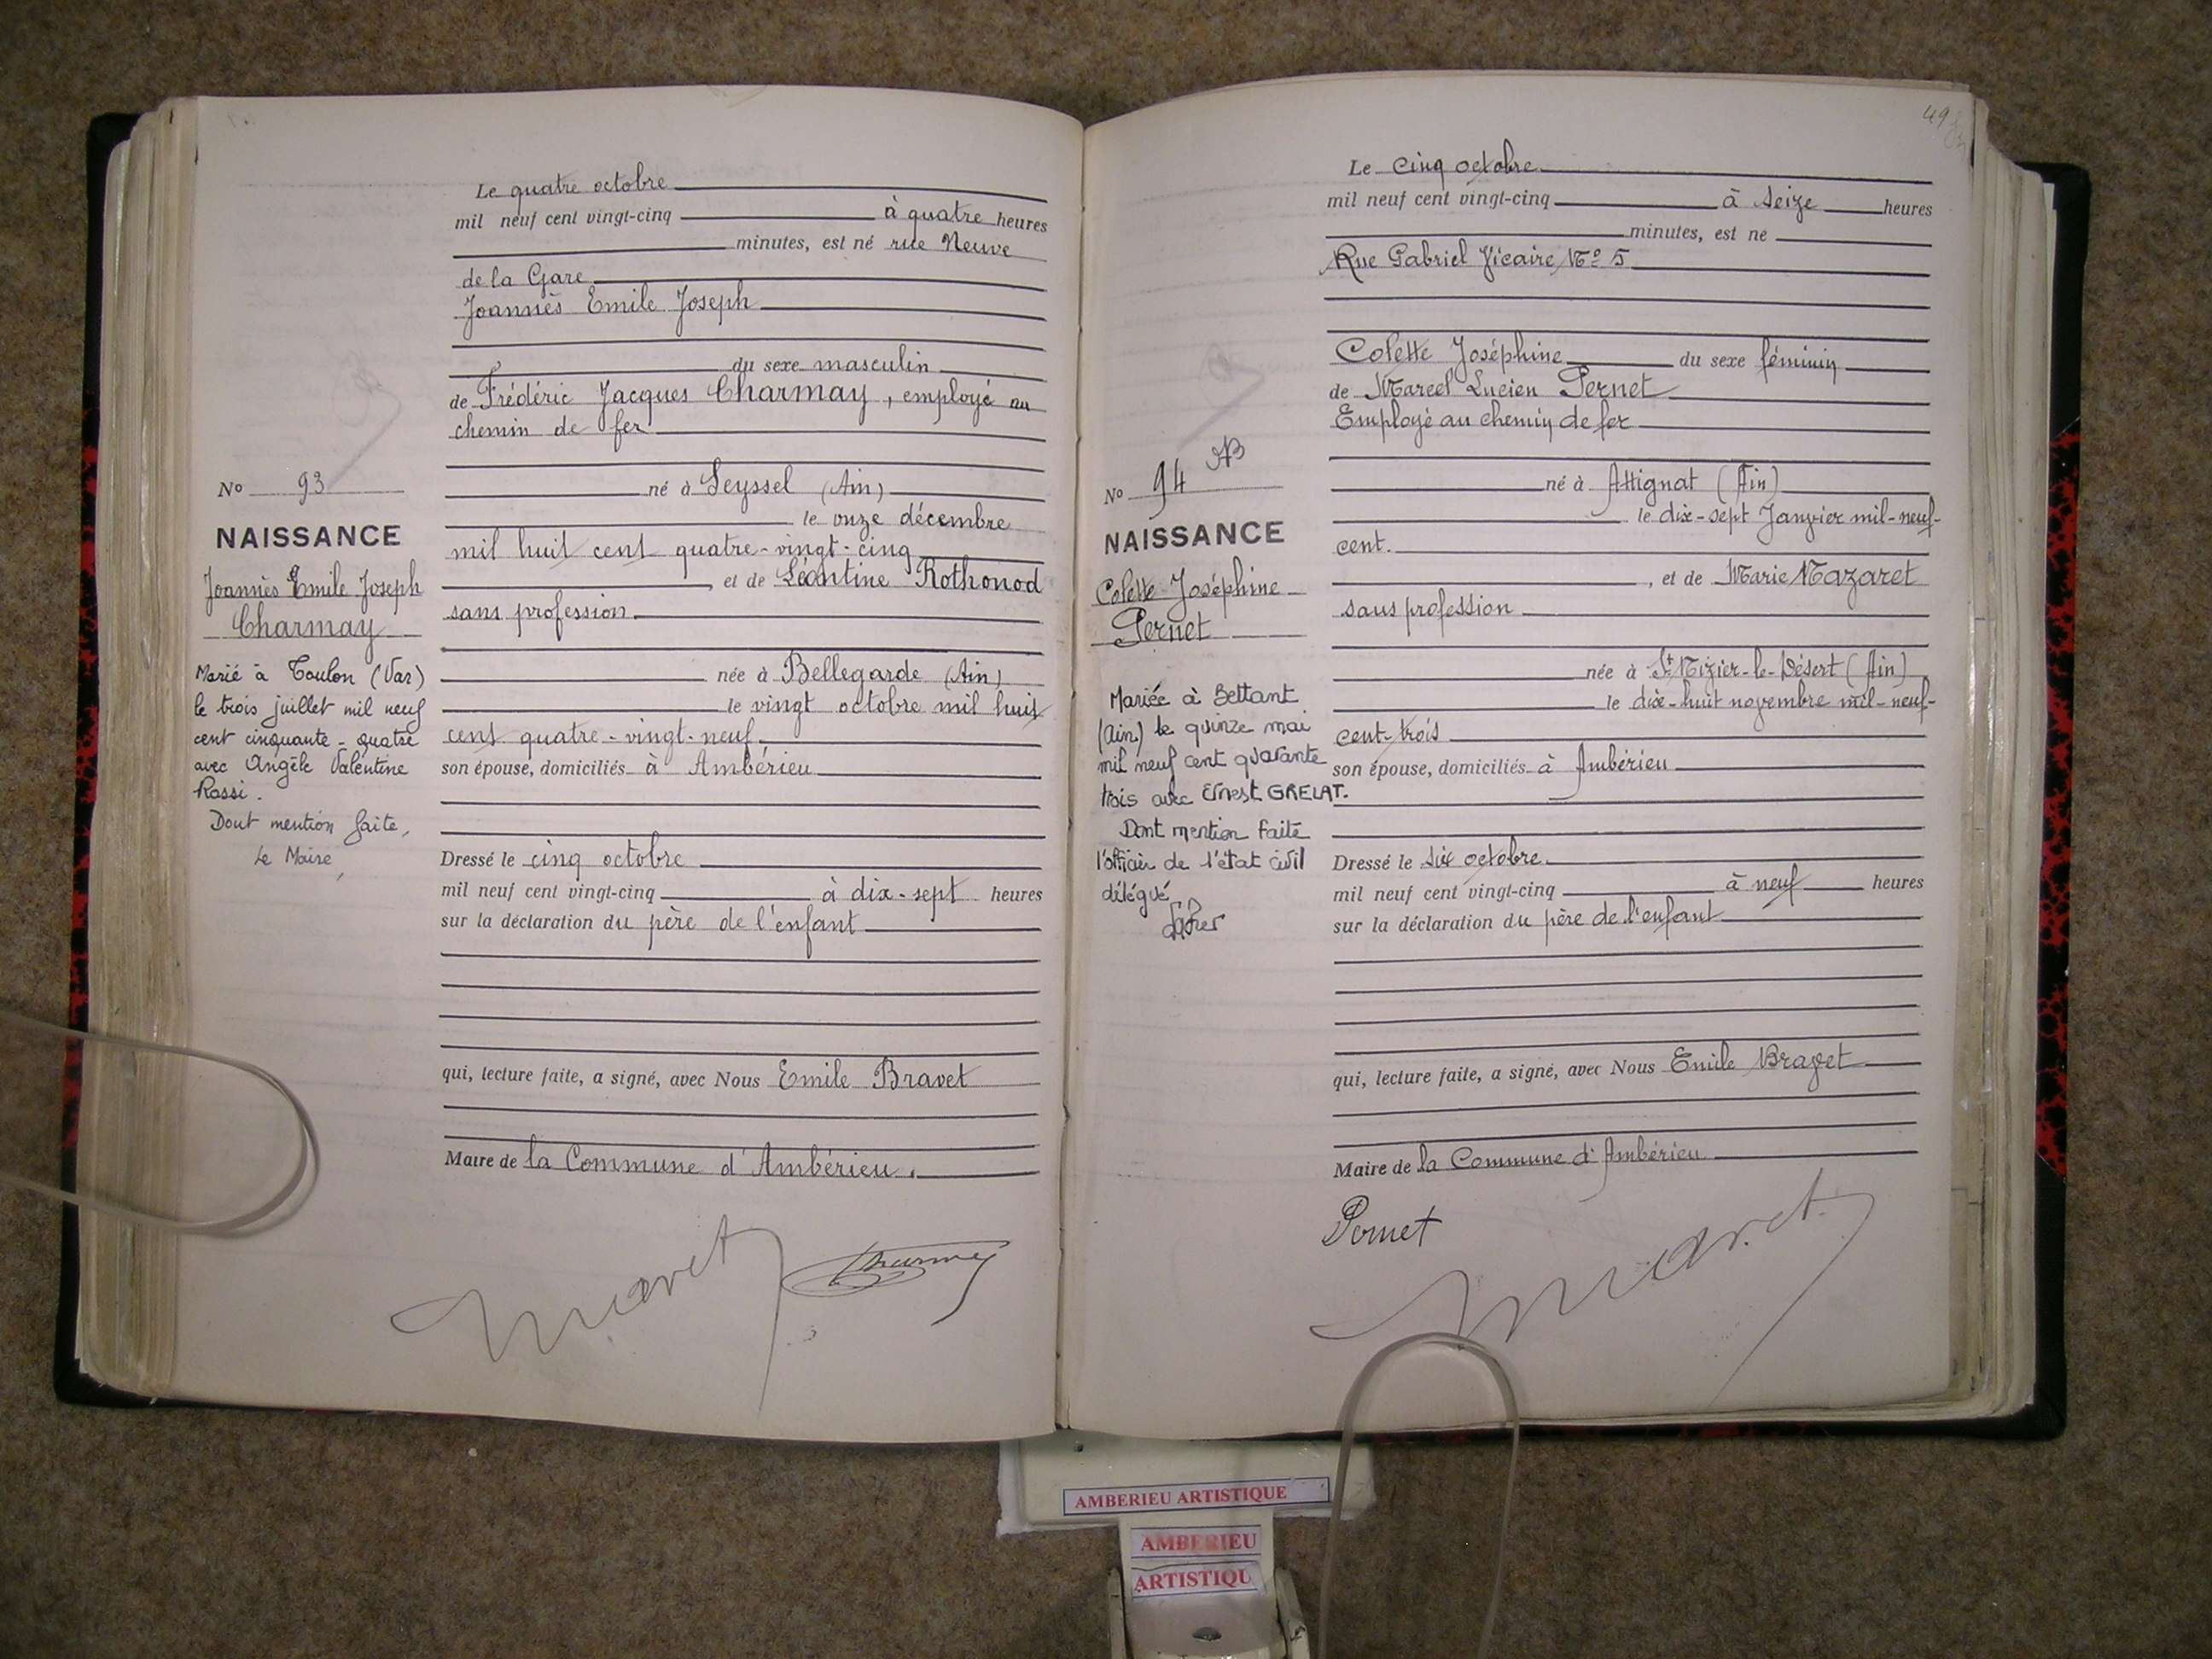 Le quatre octobre
mil neuf cent vingt-cinq à quatre heures
minutes, est né rue Neuve
de la Gare
Joannès Emile Joseph
du sexe masculin
de Frédéric Jacques Charmay, employé au
chemin de fer
né à Seyssel (Ain)
le onze décembre
mil huit cent quatre-vingt-cinq
et de Léontine Rothonod
sans profession
née à Bellegarde (Ain)
le vingt octobre mil huit
cent quatre-vingt-neuf
son épouse, domiciliés à Ambérieu
Dressé le cinq octobre
mil neuf cent vingt-cinq à dix-sept heures
sur la déclaration du père de l'enfant
qui, lecture faite, a signé, avec Nous Emile Bravet
Maire de la Commune d'Ambérieu.
No 93
NAISSANCE
Joannès Emile Joseph
Charmay
Marié à Toulon (Var)
le trois juillet mil neuf
cent cinquante-quatre
avec Angèle Valentine
Rossi.
Dont mention faite,
Le Maire,
49
Le Cinq octobre
mil neuf cent vingt-cinq à seize heures
minutes, est né
Rue Gabriel Vicaire No 5
Colette Joséphine du sexe féminin
de Marcel Lucien Pernet
Employé au chemin de fer
né à Attignat (Ain)
le dix-sept Janvier mil-neuf-
cent.
, et de Marie Nazaret
sans profession
née à St Nizier-le-Désert (Ain)
le dix-huit novembre mil-neuf-
cent-trois
son épouse, domiciliés à Ambérieu
Dressé le six octobre
mil neuf cent vingt-cinq à neuf heures
sur la déclaration du père de l'enfant
qui, lecture faite, a signé, avec Nous Emile Bravet
Maire de la Commune d'Ambérieu
Pernet
No 94
NAISSANCE
Colette Joséphine
Pernet
Mariée à Bettant
(Ain) le quinze mai
mil neuf cent quarante
trois avec Ernest GRELAT.
Dont mention faite
l'officier de l'état civil
délégué
AMBERIEU ARTISTIQUE
AMBERIEU
ARTISTIQU